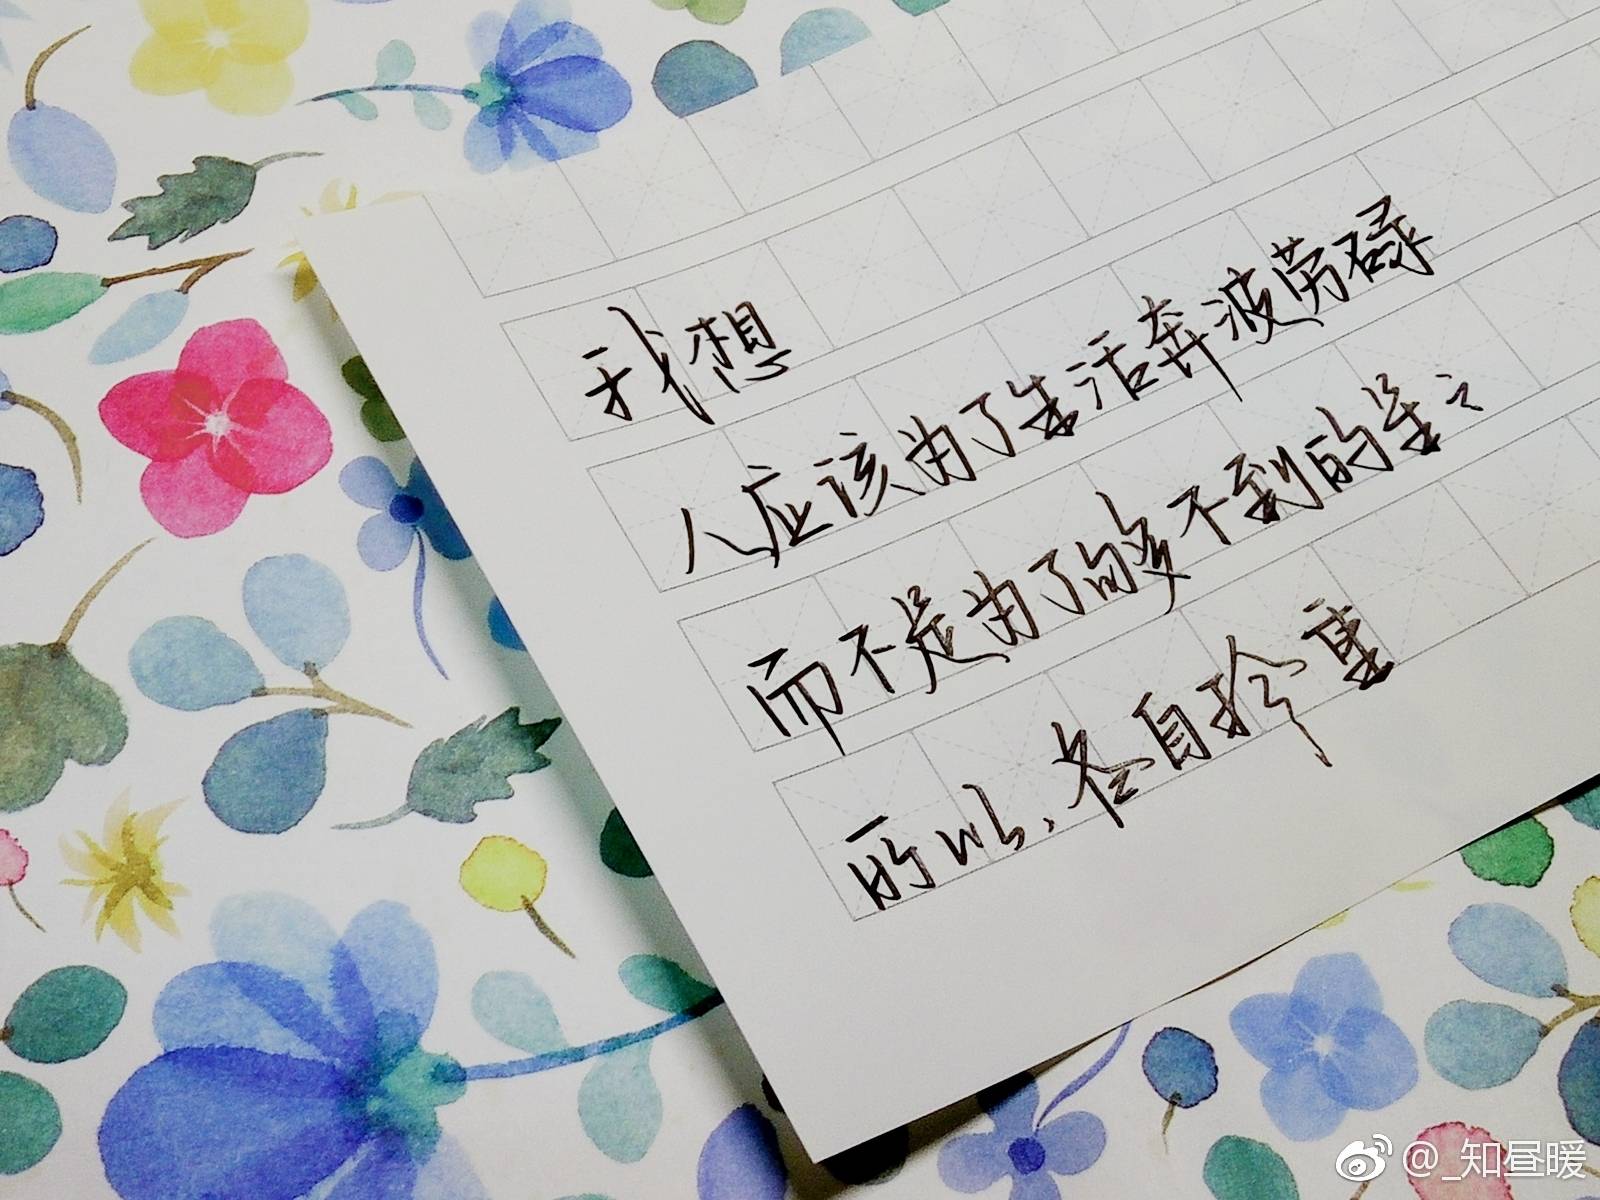 我想
人应该为了生活奔波劳碌
而不是为了够不到的星星
所以、各自珍重
@_知昼暖